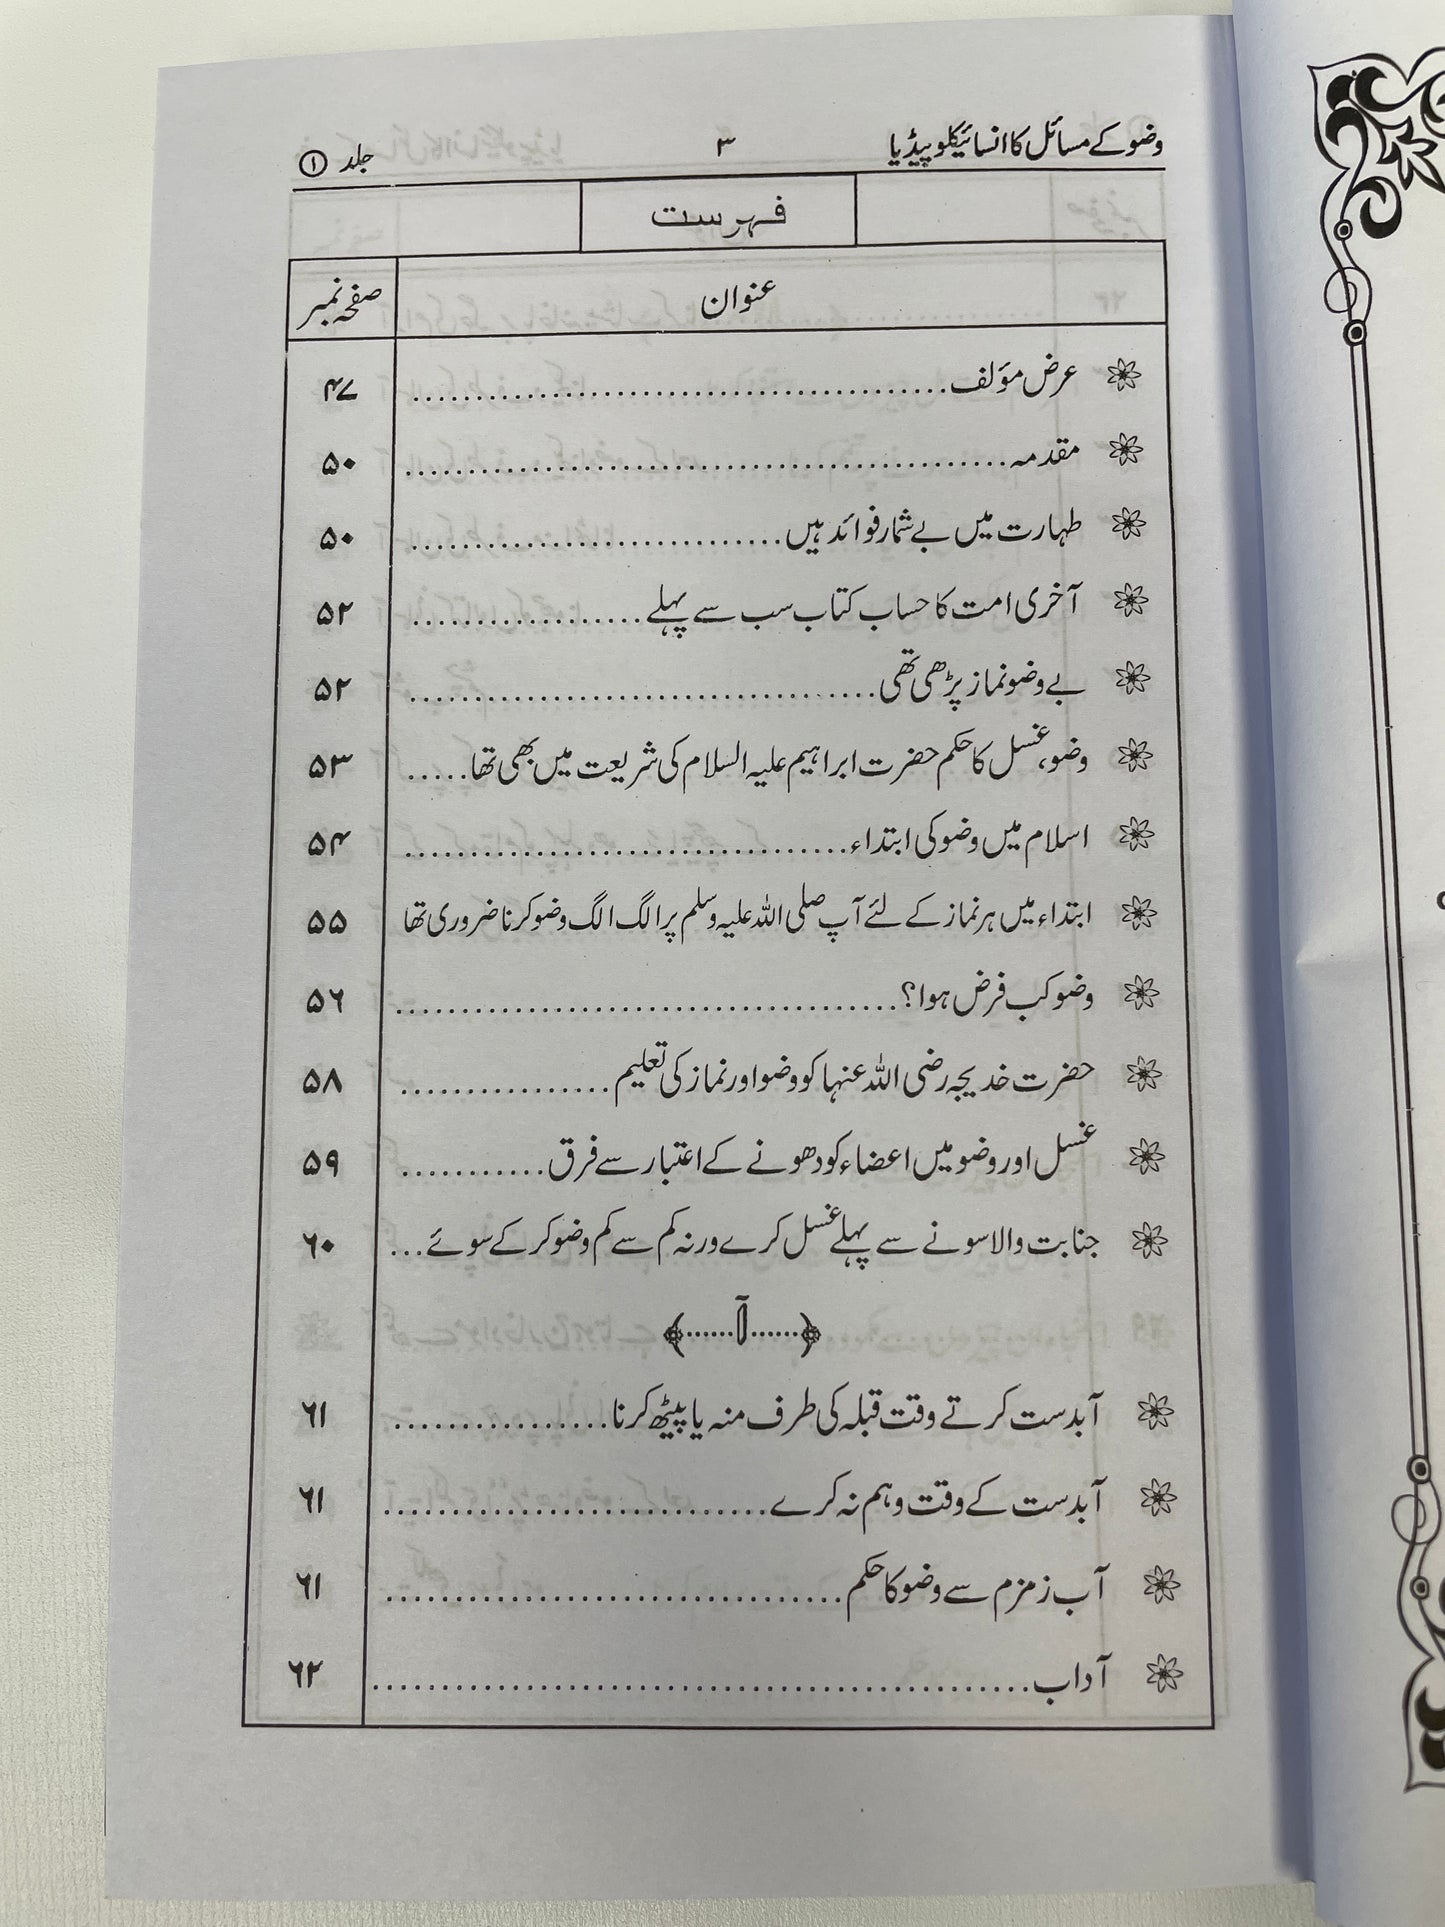 وضو کے مسائل کا انسائیکلوپیڈیا ۳ جلد ①
فہرست
عنوان صفحہ نمبر
عرض مؤلف ۴۷
مقدمہ ۵۰
طہارت میں بے شمار فوائد ہیں ۵۰
آخری امت کا حساب کتاب سب سے پہلے ۵۲
بے وضو نماز پڑھی تھی ۵۲
وضو، غسل کا حکم حضرت ابراہیم علیہ السلام کی شریعت میں بھی تھا ۵۳
اسلام میں وضو کی ابتداء ۵۴
ابتداء میں ہر نماز کے لئے آپ صلی اللہ علیہ وسلم پر الگ الگ وضو کرنا ضروری تھا ۵۵
وضو کب فرض ہوا؟ ۵۶
حضرت خدیجہ رضی اللہ عنہا کو وضو اور نماز کی تعلیم ۵۸
غسل اور وضو میں اعضاء کو دھونے کے اعتبار سے فرق ۵۹
جنابت والا سونے سے پہلے غسل کرے ورنہ کم سے کم وضو کر کے سوئے ۶۰
آ
آبدست کرتے وقت قبلہ کی طرف منہ یا پیٹھ کرنا ۶۱
آبدست کے وقت وہم نہ کرے ۶۱
آب زمزم سے وضو کا حکم ۶۱
آداب ۶۲